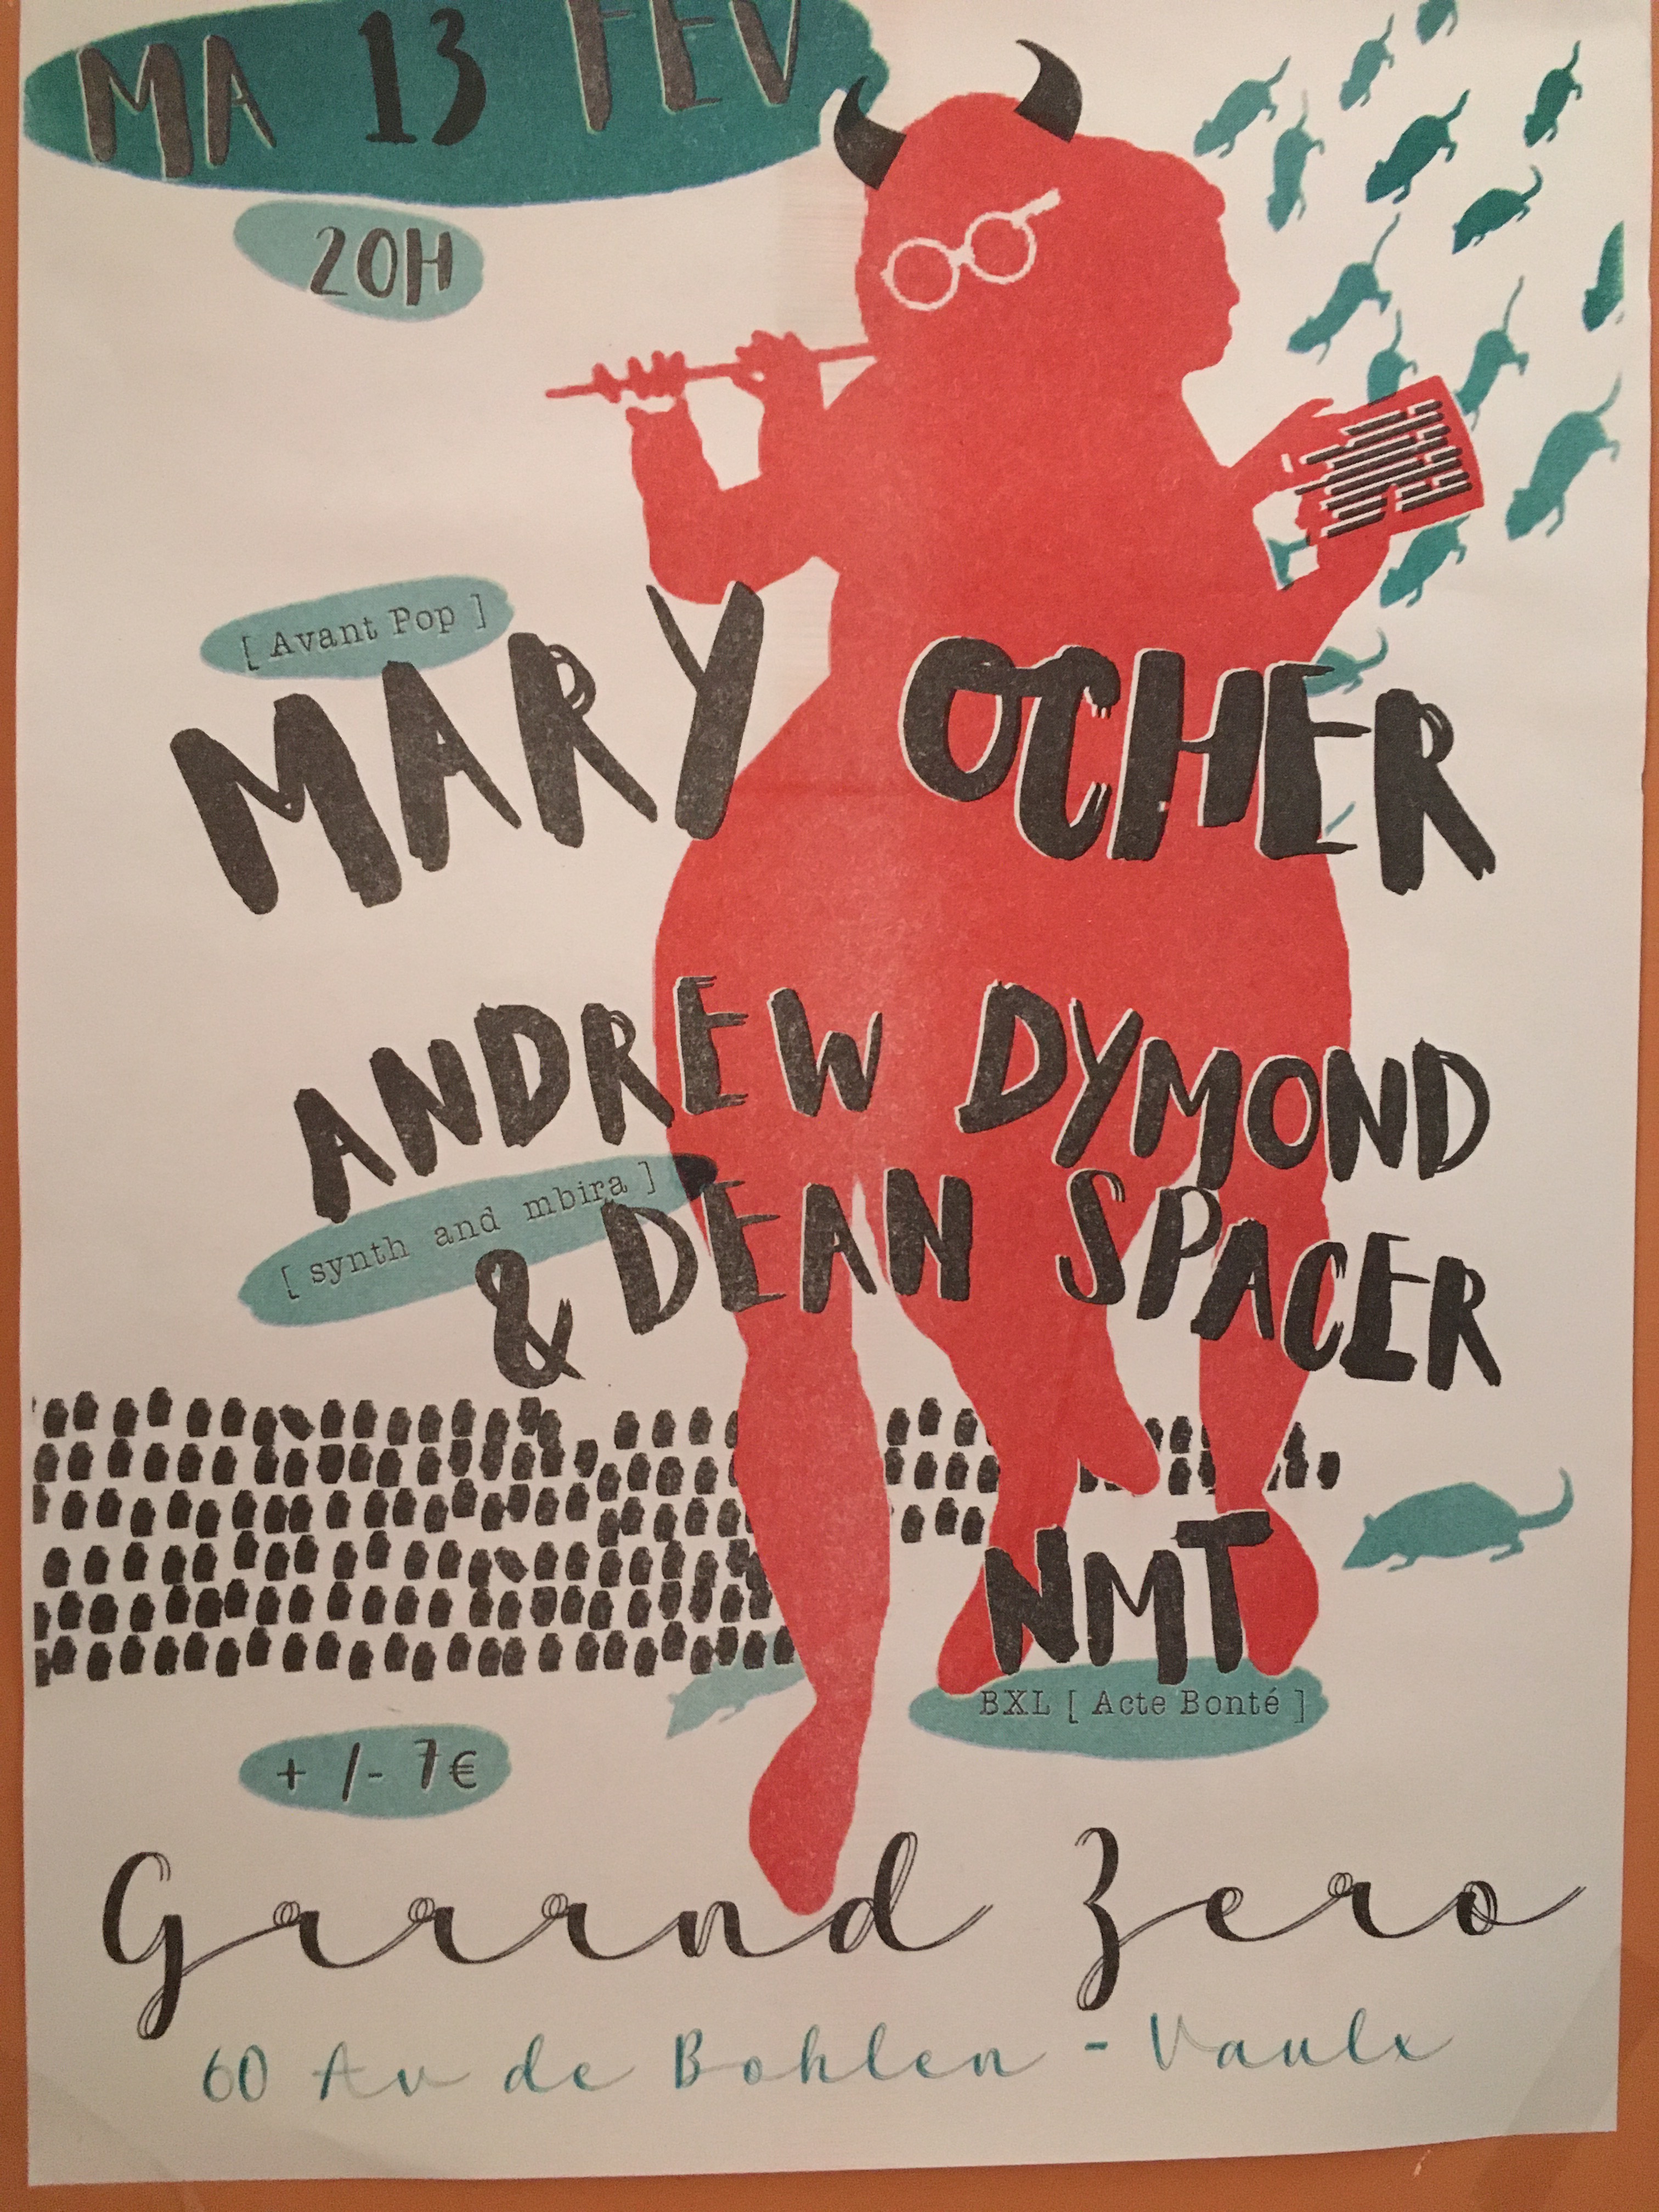 MA 13 FEV
20H
[ Avant Pop ]
MARY OCHER
ANDREW DYMOND
[ synth and mbira ]
& DEAN SPACER
NMT
BXL [ Acte Bonté ]
+ /- 7€
Grrrnd Zero
60 Av de Bohlen - Vaulx